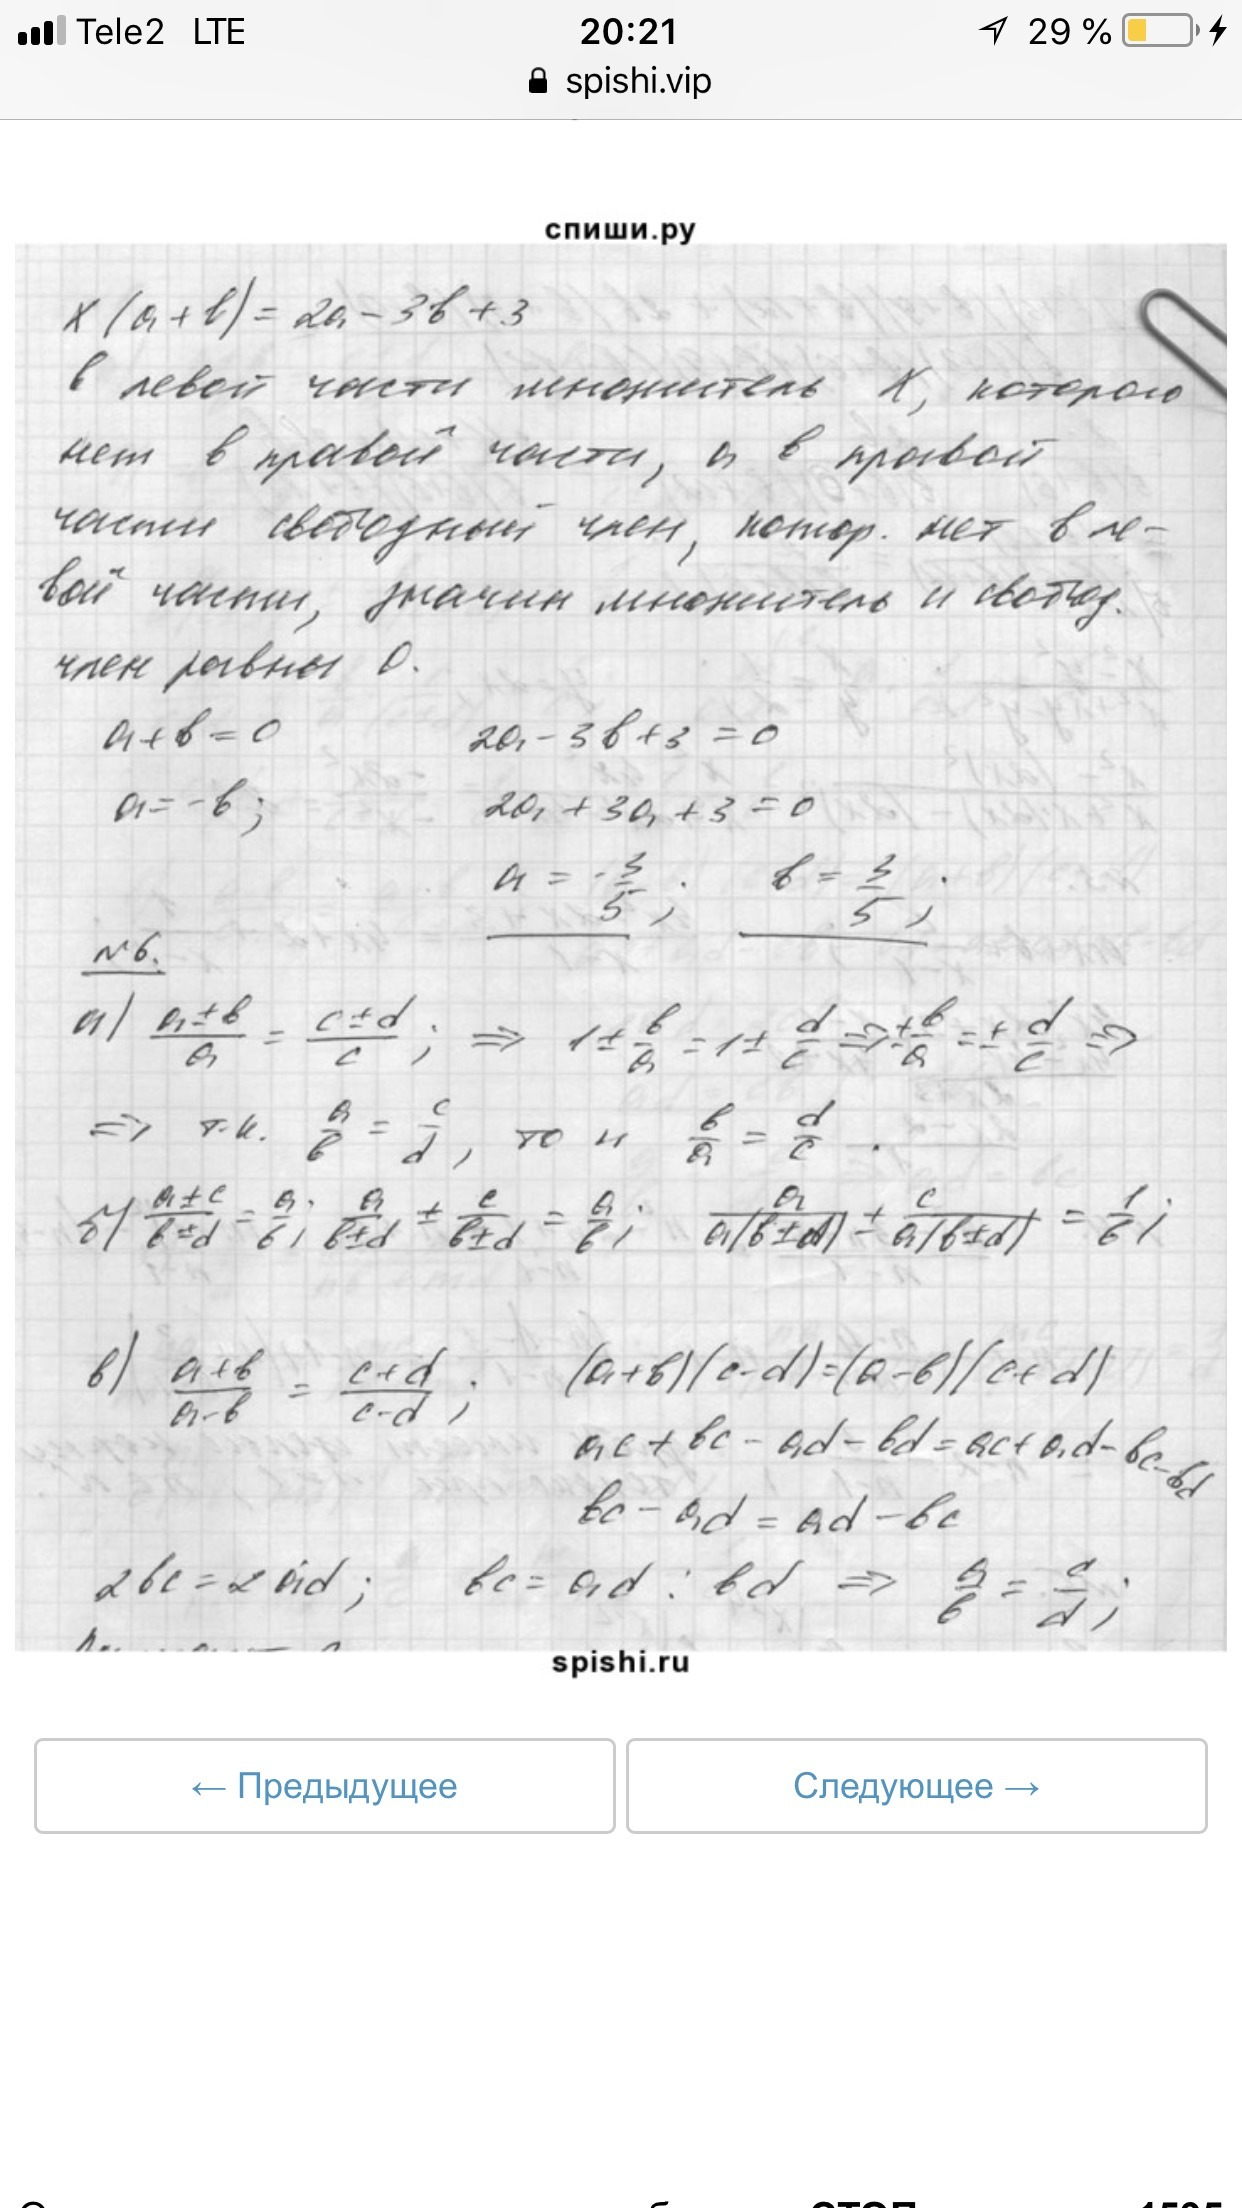 Tele2 LTE 20:21 29 %
spishi.vip
спиши.ру
x(a+b) = 2a - 3b + 3
в левой части множитель X, которого
нет в правой части, а в правой
части свободный член, котор. нет в ле-
вой части, значит множитель и свобод.
член равны 0.
a+b=0 2a-3b+3=0
a=-b; 2a+3a+3=0
a = -3/5; b = 3/5;
№6.
а) (a±b)/a = (c±d)/c; => 1 ± b/a = 1 ± d/c => ± b/a = ± d/c =>
=> т.к. a/b = c/d, то и b/a = d/c.
б) (a±c)/(b±d) = a/b; a/(b±d) ± c/(b±d) = a/b; a/(a(b±d)) ± c/(a(b±d)) = 1/b;
в) (a+b)/(a-b) = (c+d)/(c-d); (a+b)(c-d)=(a-b)(c+d)
ac+bc-ad-bd=ac+ad-bc-bd
bc-ad=ad-bc
2bc=2ad; bc=ad : bd => a/b = c/d;
spishi.ru
← Предыдущее Следующее →